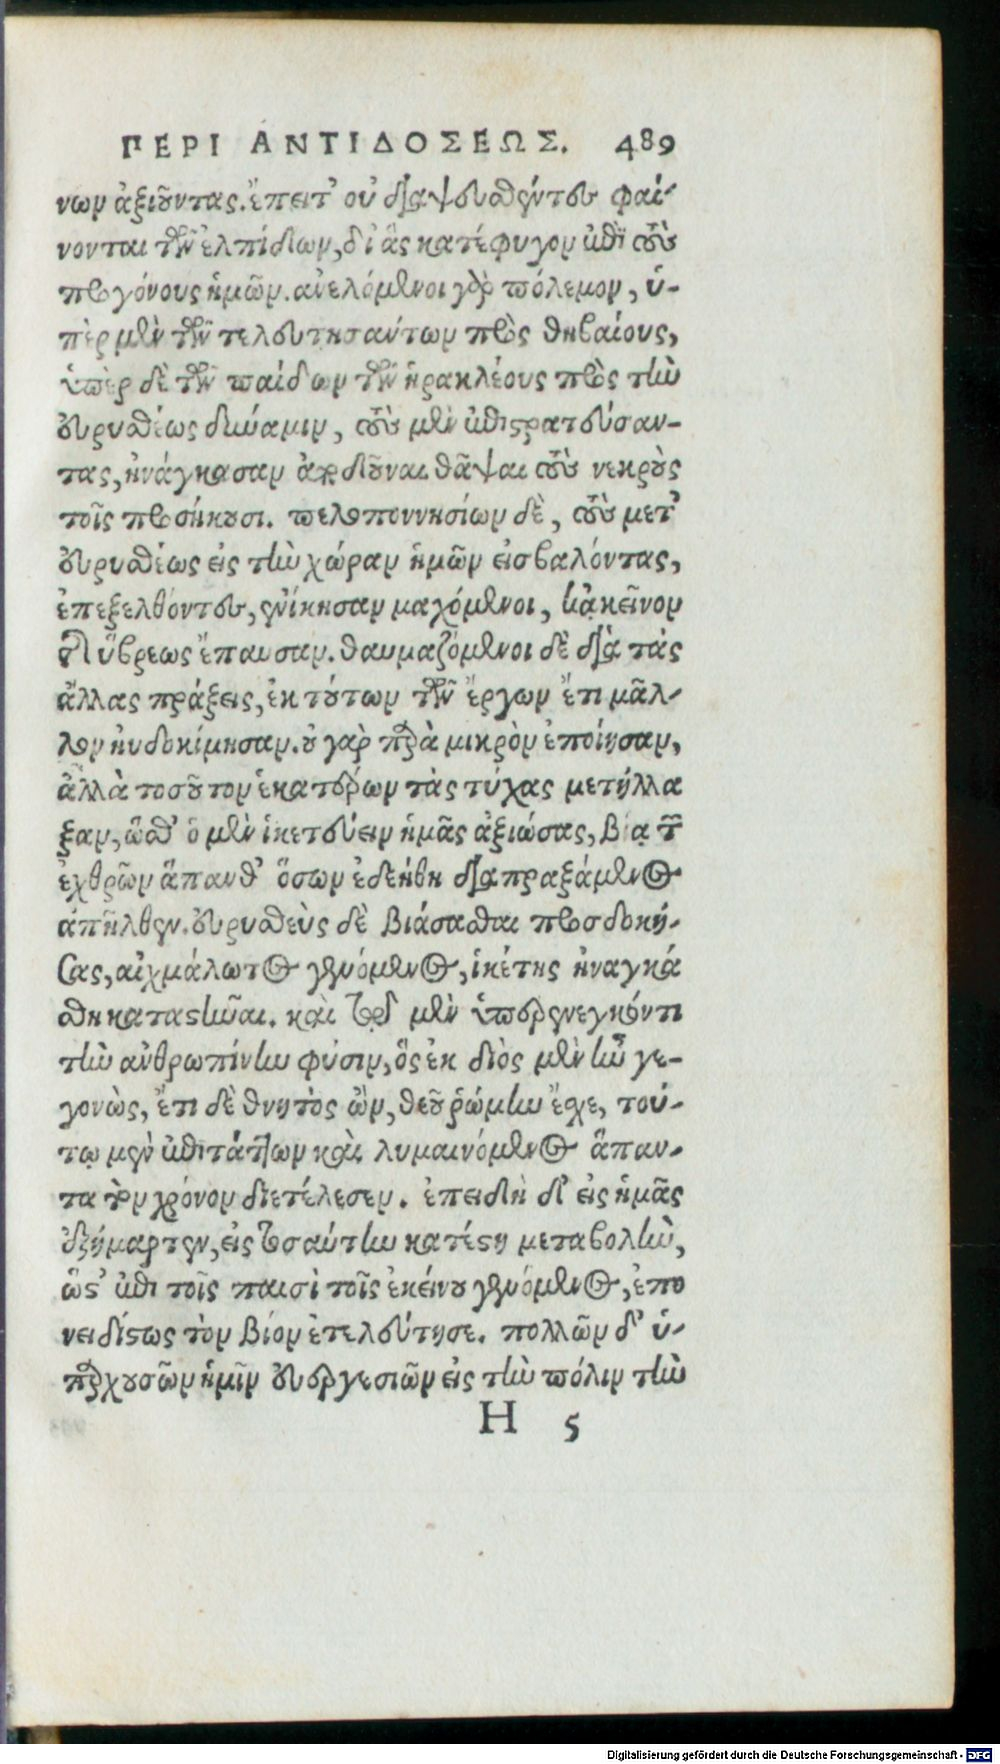 ΠΕΡΙ ΑΝΤΙΔΟΣΕΩΣ. 489
νων ἀξιοῦντας. ἔπειτ' οὐ διαψευσθέντες φαί-
νονται τῶν ἐλπίδων, δι' ἃς κατέφυγον ἐπὶ τοὺς
προγόνους ἡμῶν. ἀνελόμενοι γὰρ πόλεμον, ὑ-
πὲρ μὲν τῶν τελευτησάντων πρὸς θηβαίους,
ὑπὲρ δὲ τῶν παίδων τῶν ἡρακλέους πρὸς τὴν
εὐρυσθέως δύναμιν, τοὺς μὲν ἐπιστρατεύσαν-
τας, ἠνάγκασαν ἀποδοῦναι θάψαι τοὺς νεκροὺς
τοῖς προσήκουσι. πελοποννησίων δὲ, τοὺς μετ'
εὐρυσθέως εἰς τὴν χώραν ἡμῶν εἰσβαλόντας,
ἐπεξελθόντες, ἐνίκησαν μαχόμενοι, κἀκεῖνον
τῆς ὕβρεως ἔπαυσαν. θαυμαζόμενοι δὲ διὰ τὰς
ἄλλας πράξεις, ἐκ τούτων τῶν ἔργων ἔτι μᾶλ-
λον ηὐδοκίμησαν. οὐ γὰρ παρὰ μικρὸν ἐποίησαν,
ἀλλὰ τοσοῦτον ἑκατέρων τὰς τύχας μετήλλα
ξαν, ὥσθ' ὁ μὲν ἱκετεύειν ἡμᾶς ἀξιώσας, βίᾳ τῶν
ἐχθρῶν ἅπανθ' ὅσων ἐδεήθη διαπραξάμενος
ἀπῆλθεν. εὐρυσθεὺς δὲ βιάσασθαι προσδοκή-
σας, αἰχμάλωτος γενόμενος, ἱκέτης ἠναγκά
σθη καταστῆναι. καὶ τῷ μὲν ὑπερενεγκόντι
τὴν ἀνθρωπίνην φύσιν, ὃς ἐκ διὸς μὲν ἦν γε-
γονὼς, ἔτι δὲ θνητὸς ὢν, θεοῦ ῥώμην ἔσχε, τού-
τῳ μὲν ἐπιτάττων καὶ λυμαινόμενος ἅπαν-
τα τὸν χρόνον διετέλεσεν. ἐπειδὴ δ' εἰς ἡμᾶς
ἐξήμαρτεν, εἰς τοσαύτην κατέστη μεταβολὴν,
ὥστ' ἐπὶ τοῖς παισὶ τοῖς ἐκείνου γενόμενος, ἐπο
νειδίστως τὸν βίον ἐτελεύτησε. πολλῶν δ' ὑ-
παρχουσῶν ἡμῖν εὐεργεσιῶν εἰς τὴν πόλιν τὴν
H 5
Digitalisierung gefördert durch die Deutsche Forschungsgemeinschaft - DFG